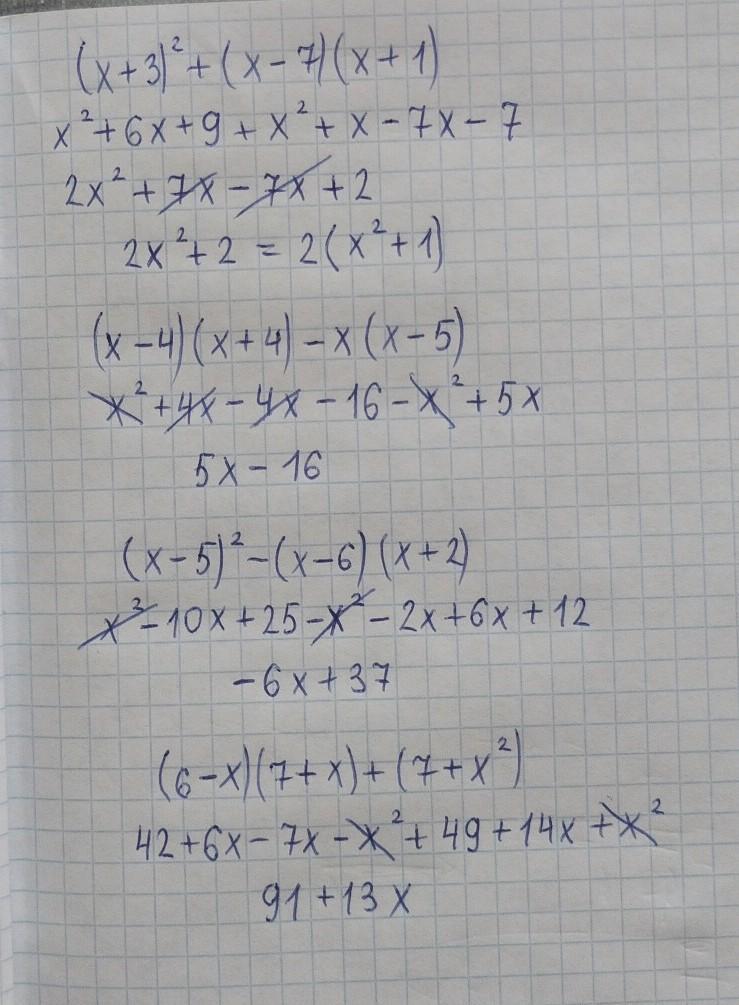 (x+3)²+(x-7)(x+1)
x²+6x+9+x²+x-7x-7
2x²+7x-7x+2
2x²+2=2(x²+1)
(x-4)(x+4)-x(x-5)
x²+4x-4x-16-x²+5x
5x-16
(x-5)²-(x-6)(x+2)
x²-10x+25-x²-2x+6x+12
-6x+37
(6-x)(7+x)+(7+x²)
42+6x-7x-x²+49+14x+x²
91+13x